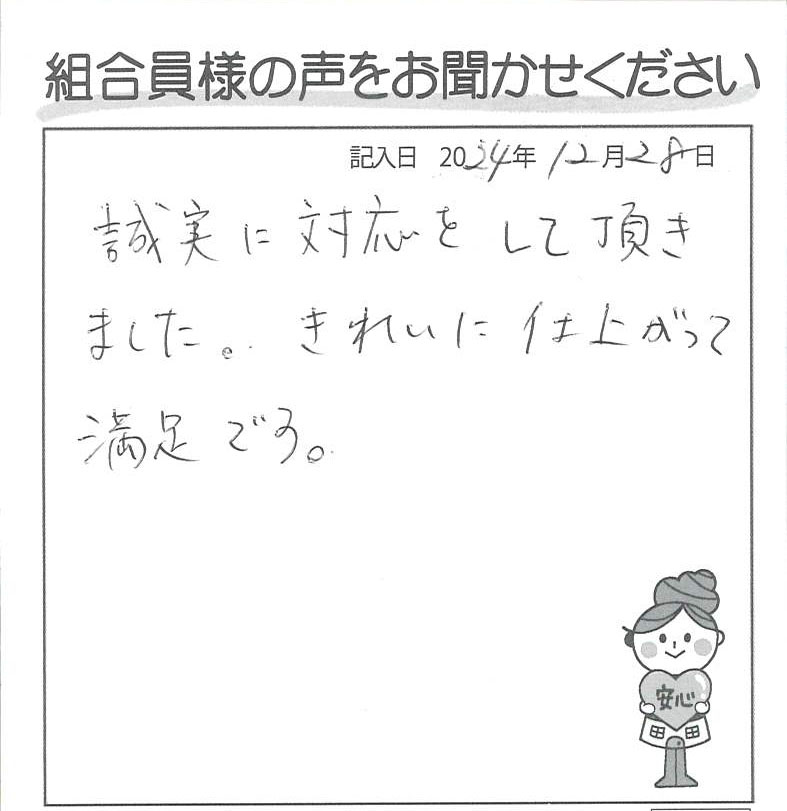 組合員様の声をお聞かせください
記入日 2024年12月28日
誠実に対応をして頂き
ました。きれいに仕上がって
満足です。
安心